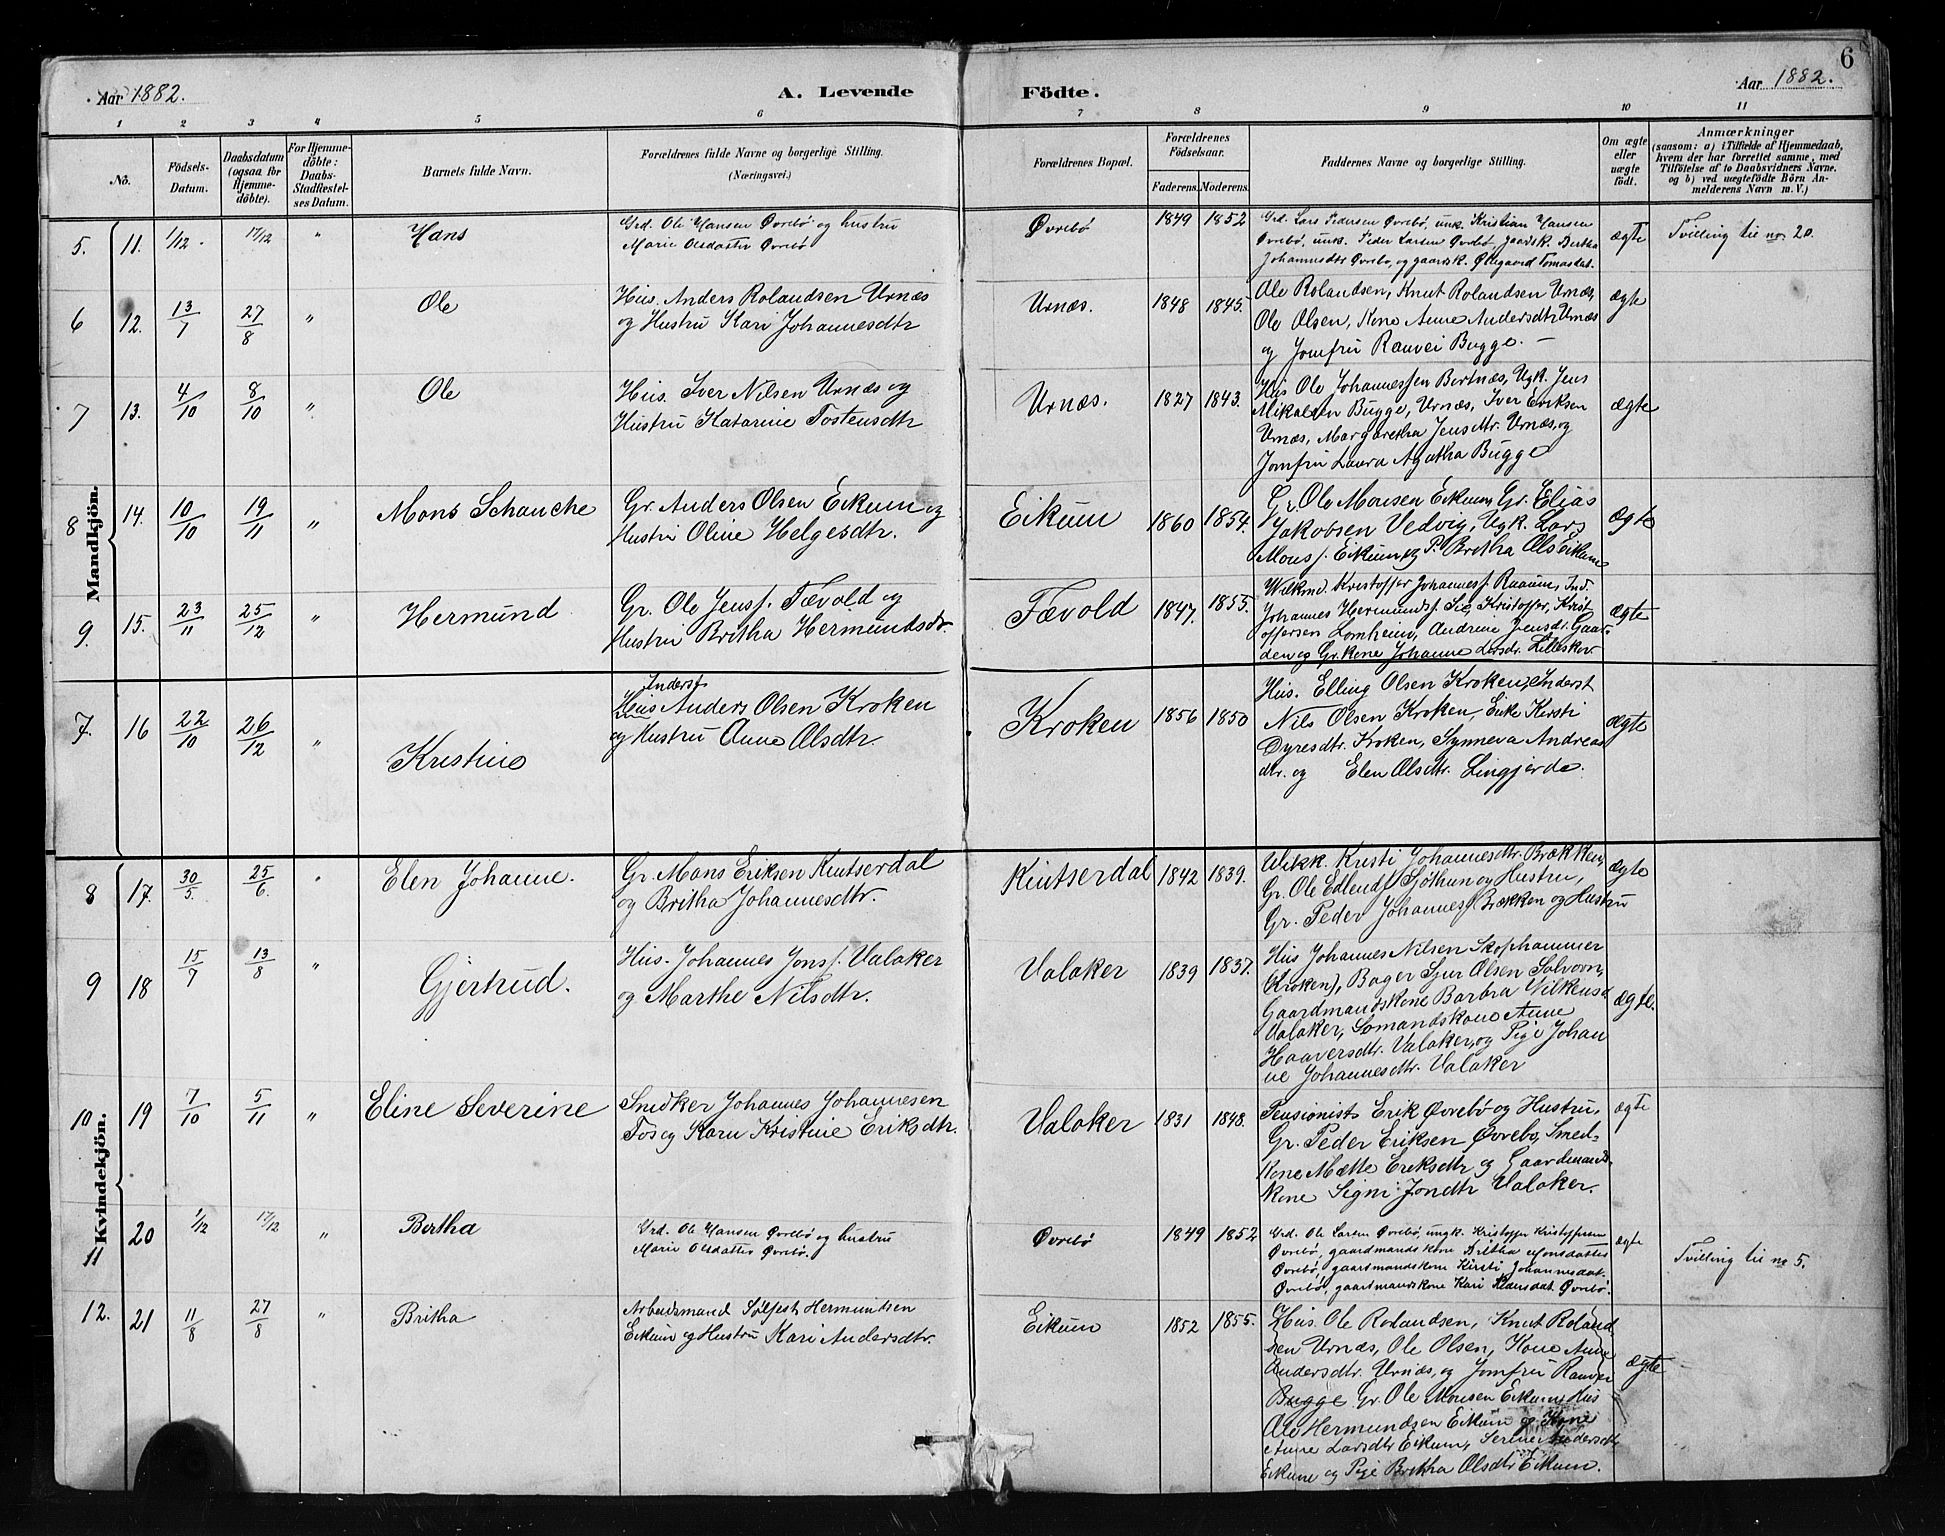 6
Aar 1882.
A. Levende
Födte.
Aar 1882.
1 2 3 4 5 6 7 8 9 10 11
No.
Födsels-
Datum.
Daabsdatum
(ogsaa for
Hjemme-
döbte).
For Hjemme-
döbte:
Daabs-
Stadfæstel-
ses Datum.
Barnets fulde Navn.
Forældrenes fulde Navne og borgerlige Stilling.
(Næringsvei.)
Forældrenes Bopæl.
Forældrenes
Födselsaar.
Faderens. Moderens.
Faddernes Navne og borgerlige Stilling.
Om ægte
eller
uægte
födt.
Anmærkninger
(saasom: a) i Tilfælde af Hjemmedaab,
hvem der har forrettet samme, med
Tilföielse af to Daabsvidners Navne.
og b) ved uægtefödte Börn An-
melderens Navn m. V.)
Mandkjön.
5. 11. 1/12. 17/12 " Hans
Grd. Ole Hansen Øvrebø og hustru
Marie Olsdatter Øvrebø
Øvrebø 1849 1852
Grd. Lars Pedersen Øvrebø, unk. Kristian Hansen
Øvrebø, unk. Peder Larsen Øvrebø, gaardsk. Bertha
Johannesdtr Øvrebø, og gaardsk. Øllegaard Tomasdat.
ægte Tvilling til no. 20.
6 12. 13/7 27/8 " Ole
Hus. Anders Rolandsen Urnæs
og Hustru Kari Johannesdtr
Urnæs. 1848 1845.
Ole Rolandsen, Knut Rolandsen Urnæs,
Ole Olsen, Kone Anne Andersdtr Urnæs
og Jomfru Ranvei Bugge. –
ægte
7 13. 4/10 8/10 " Ole
Hus. Iver Nilsen Urnæs og
Hustru Katarine Tostensdtr
Urnæs. 1827 1843.
Hus Ole Johannessen Bertnæs, Ugk. Jens
Mikalsen Bugge, Urnæs, Iver Eriksen
Urnæs, Margaretha Jensdtr. Urnæs, og
Jomfru Laura Agatha Bugge
ægte
8 14. 10/10 19/11 " Mons Schanche
Gr. Anders Olsen Eikum og
Hustru Oline Helgesdtr.
Eikum 1860 1854.
Gr. Ole Monsen Eikum, Gr. Elias
Jakobsen Vedvig, Ugk. Lars
Monsf. Eikum og P. Britha Ols Eikum
ægte
9. 15. 23/11 25/12 " Hermund
Gr. Ole Jensf. Fævold og
Hustru Britha Hermundsdr.
Fævold 1847. 1855.
Kristoffer Johannesf. Raaum, Ind.
Johannes Hermundsf. Kristoffer, Krist
offersen Lomheim, Andrine Jensdr. Gaar-
den og Gr.kone Johanne Larsdr. Lilleskov
ægte
7. 16 22/10 26/12 " Kristine
Inderst
Hus Anders Olsen Kroken
og Hustru Anne Olsdtr.
Kroken 1856 1850
Hus. Elling Olsen Kroken, Inderst
Nils Olsen Kroken, Enke Kirsti
Dyresdtr. Kroken, Synneva Andreas
dtr. og Elen Olsdtr. Lingjerde.
ægte
Kvindekjön.
8 17. 30/5 25/6. " Elen Johanne.
Gr. Mons Eriksen Kintserdal
og Britha Johannesdtr.
Kintserdal 1842 1839.
Kristi Johannesdtr. Brækken,
Gr. Ole Edlendsf Sjøthun og Hustru,
Gr. Peder Johannesf Brækken og Hustru
ægte
9 18 15/7 13/8 " Gjertrud.
Hus. Johannes Jonsf. Valaker
og Marthe Nilsdtr.
Valaker 1839 1837.
Hus Johannes Nilsen Skophammer
(Kroken), Bager Sjur Olsen Solvorn,
Gaardmandskone Barbra Vilkensd.
Valaker, Somandskone Anne
Haaversdtr. Valaker, og Pige Johan
ne Johannesdtr. Valaker
ægte.
10 19 7/10 5/11 " Eline Severine
Snedker Johannes Johannesen
Fos og Karn Kristine Eriksdtr.
Valaker 1831 1848.
Pensionists Erik Øvrebø og Hustru,
Gr. Peder Eriksen Øvrebø, Smed-
kone Mætte Eriksdtr og Gaardmands-
kone Signi Jondtr Valaker.
ægte
11 20 1/12 17/12 " Bertha
Grd. Ole Hansen Øvrebø og hustru
Marie Olsdatter Øvrebø.
Øvrebø 1849 1852
Grd. Ole Larsen Øvrebø, ungk. Kristoffer Kristoffersen
Øvrebø, gaardmandskone Britha Monsdatter
Øvrebø, gaardmandskone Kirsti Johannesdat.
Øvrebø, gaardmandskone Kari Pedersdat. Øvrebø.
ægte Tvilling til no 5.
12. 21 11/8 27/8 " Britha
Arbeidsmand Sølfest Hermundsen
Eikum og Hustru Kari Andersdtr.
Eikum 1852 1855.
Hus. Ole Rolandsen, Knut Roland
sen Urnæs, Ole Olsen, Kone Anne
Andersdtr. Urnæs, og Jomfru Ranvei
Bugge. Gr. Ole Monsen Eikum, Hus
Ole Hermundsen Eikum og Kone
Anne Larsdtr Eikum, Serine Andersdtr
Eikum og Pige Britha Olsdtr Eikum.
ægte